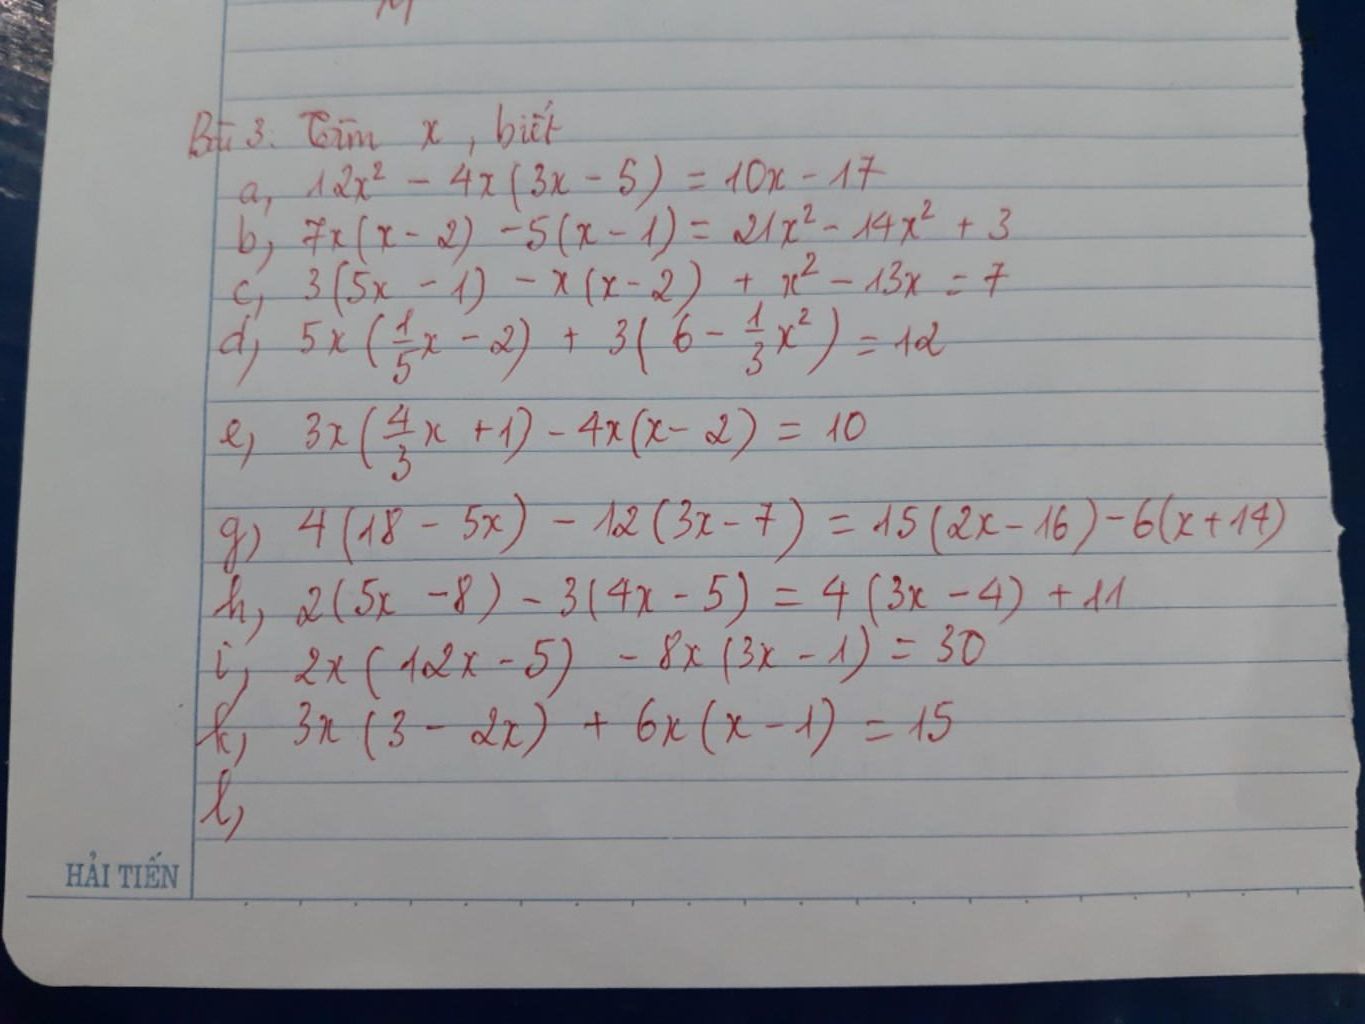 Bài 3. Tìm x, biết
a, 12x² - 4x(3x - 5) = 10x - 17
b, 7x(x - 2) - 5(x - 1) = 21x² - 14x² + 3
c, 3(5x - 1) - x(x - 2) + x² - 13x = 7
d, 5x(1/5x - 2) + 3(6 - 1/3x²) = 12
e, 3x(4/3x + 1) - 4x(x - 2) = 10
g, 4(18 - 5x) - 12(3x - 7) = 15(2x - 16) - 6(x + 14)
h, 2(5x - 8) - 3(4x - 5) = 4(3x - 4) + 11
i, 2x(12x - 5) - 8x(3x - 1) = 30
k, 3x(3 - 2x) + 6x(x - 1) = 15
l,
HẢI TIẾN